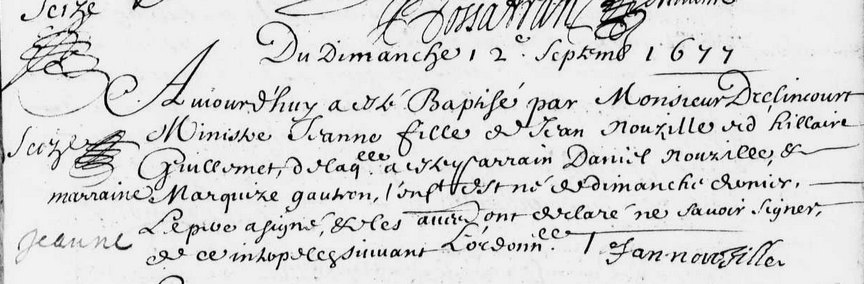 Seize
Du Dimanche 12e Septemb 1677
Aujourd'huy a esté Baptisé par Monsieur Drelincourt
Ministre Jeanne fille de Jean Nouzille et d'hillaire
Seize
Guillemet, de laqlle a esté parrain Daniel Nouzille, &
marraine Marquize gautron, l'enft est né dedimanche dernier,
Le pere a signé, & les autres ont declaré ne savoir signer,
Jeanne
de ce interpelés suivant L'ordonnce
Jan nouzille